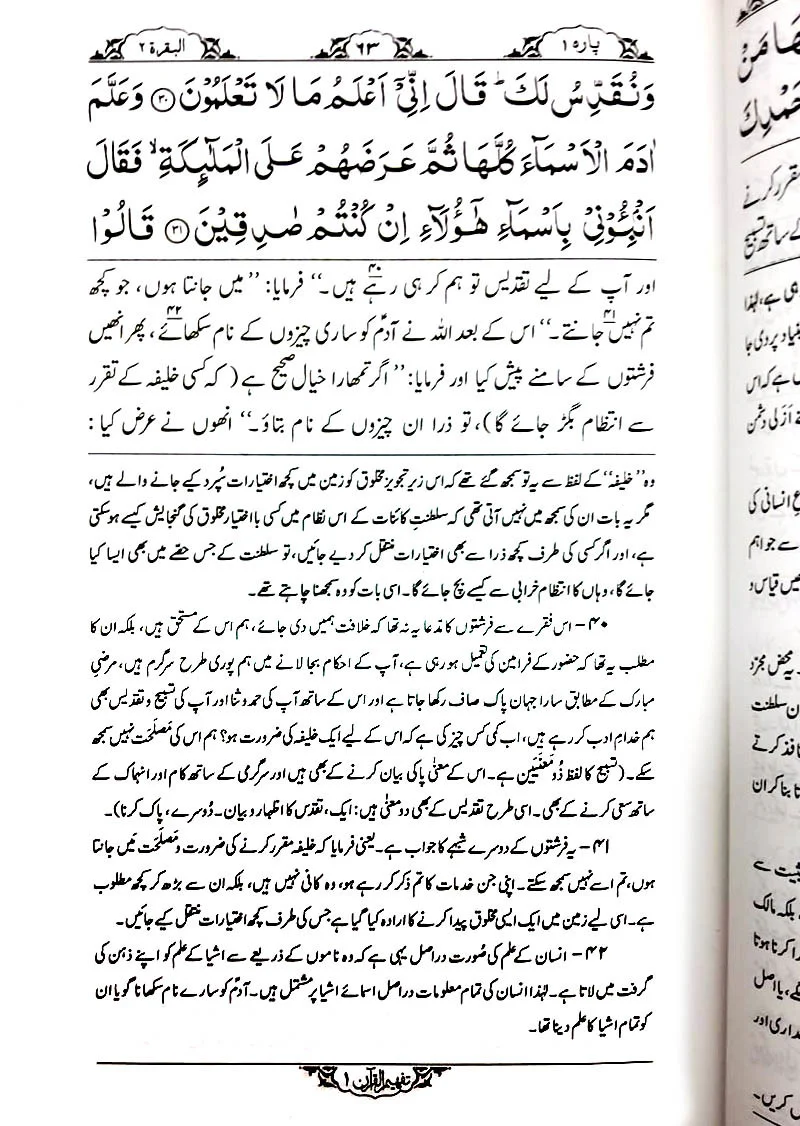 پارہ ۱
۶۳
البقرۃ ۲
وَنُقَدِّسُ لَكَ ؕ قَالَ اِنِّیْۤ اَعْلَمُ مَا لَا تَعْلَمُوْنَ ۝۳۰ وَعَلَّمَ
اٰدَمَ الْاَسْمَآءَ كُلَّهَا ثُمَّ عَرَضَهُمْ عَلَی الْمَلٰٓئِكَةِ ۙ فَقَالَ
اَنْۢبِـُٔوْنِیْ بِاَسْمَآءِ هٰۤؤُلَآءِ اِنْ كُنْتُمْ صٰدِقِیْنَ ۝۳۱ قَالُوْا
اور آپ کے لیے تقدیس تو ہم کر ہی رہے ہیں۔‘‘ ۴۰ فرمایا: ’’میں جانتا ہوں، جو کچھ
تم نہیں جانتے۔‘‘ ۴۱ اس کے بعد اللہ نے آدمؑ کو ساری چیزوں کے نام سکھائے، ۴۲ پھر انھیں
فرشتوں کے سامنے پیش کیا اور فرمایا: ’’اگر تمھارا خیال صحیح ہے (کہ کسی خلیفہ کے تقرر
سے انتظام بگڑ جائے گا)، تو ذرا ان چیزوں کے نام بتاؤ۔‘‘ انھوں نے عرض کیا:
وہ ’’خلیفہ‘‘ کے لفظ سے یہ تو سمجھ گئے تھے کہ اس زیرِ تجویز مخلوق کو زمین میں کچھ اختیارات سُپرد کیے جانے والے ہیں،
مگر یہ بات ان کی سمجھ میں نہیں آتی تھی کہ سلطنتِ کائنات کے اس نظام میں کسی با اختیار مخلوق کی گنجایش کیسے ہو سکتی
ہے، اور اگر کسی کی طرف کچھ ذرا سے بھی اختیارات منتقل کر دیے جائیں، تو سلطنت کے جس حصّے میں بھی ایسا کیا
جائے گا، وہاں کا انتظام خرابی سے کیسے بچ جائے گا۔ اسی بات کو وہ سمجھنا چاہتے تھے۔
۴۰ – اس فقرے سے فرشتوں کا مدّعا یہ نہ تھا کہ خلافت ہمیں دی جائے، ہم اس کے مستحق ہیں، بلکہ ان کا
مطلب یہ تھا کہ حضور کے فرامین کی تعمیل ہو رہی ہے، آپ کے احکام بجا لانے میں ہم پوری طرح سرگرم ہیں، مرضیِ
مبارک کے مطابق سارا جہان پاک صاف رکھا جاتا ہے اور اس کے ساتھ آپ کی حمد و ثنا اور آپ کی تسبیح و تقدیس بھی
ہم خدامِ ادب کر رہے ہیں، اب کمی کس چیز کی ہے کہ اس کے لیے ایک خلیفہ کی ضرورت ہو؟ ہم اس کی مَصلَحت نہیں سمجھ
سکے۔ (تسبیح کا لفظ ذُو معنَیَین ہے۔ اس کے معنی پاکی بیان کرنے کے بھی ہیں اور سرگرمی کے ساتھ کام اور انہماک کے
ساتھ سعی کرنے کے بھی۔ اسی طرح تقدیس کے بھی دو معنی ہیں: ایک، تقدّس کا اظہار و بیان۔ دُوسرے، پاک کرنا)۔
۴۱ – یہ فرشتوں کے دوسرے شبہے کا جواب ہے۔ یعنی فرمایا کہ خلیفہ مقرر کرنے کی ضرورت و مَصلَحت مَیں جانتا
ہوں، تم اسے نہیں سمجھ سکتے۔ اپنی جن خدمات کا تم ذکر کر رہے ہو، وہ کافی نہیں ہیں، بلکہ ان سے بڑھ کر کچھ مطلوب
ہے۔ اسی لیے زمین میں ایک ایسی مخلوق پیدا کرنے کا ارادہ کیا گیا ہے جس کی طرف کچھ اختیارات منتقل کیے جائیں۔
۴۲ – انسان کے علم کی صُورت دراصل یہی ہے کہ وہ ناموں کے ذریعے سے اشیا کے علم کو اپنے ذہن کی
گرفت میں لاتا ہے۔ لہٰذا انسان کی تمام معلومات دراصل اسمائے اشیا پر مشتمل ہیں۔ آدمؑ کو سارے نام سکھانا گویا ان
کو تمام اشیا کا علم دینا تھا۔
تفہیم القرآن ۱